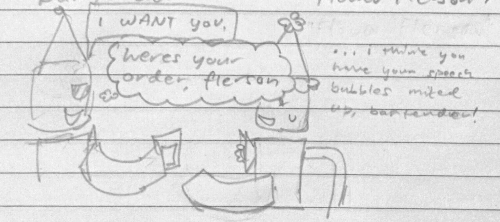 I WANT YOU,
heres your
order, flerson
... i think you
have your speech
bubbles mixed
up, bartender!